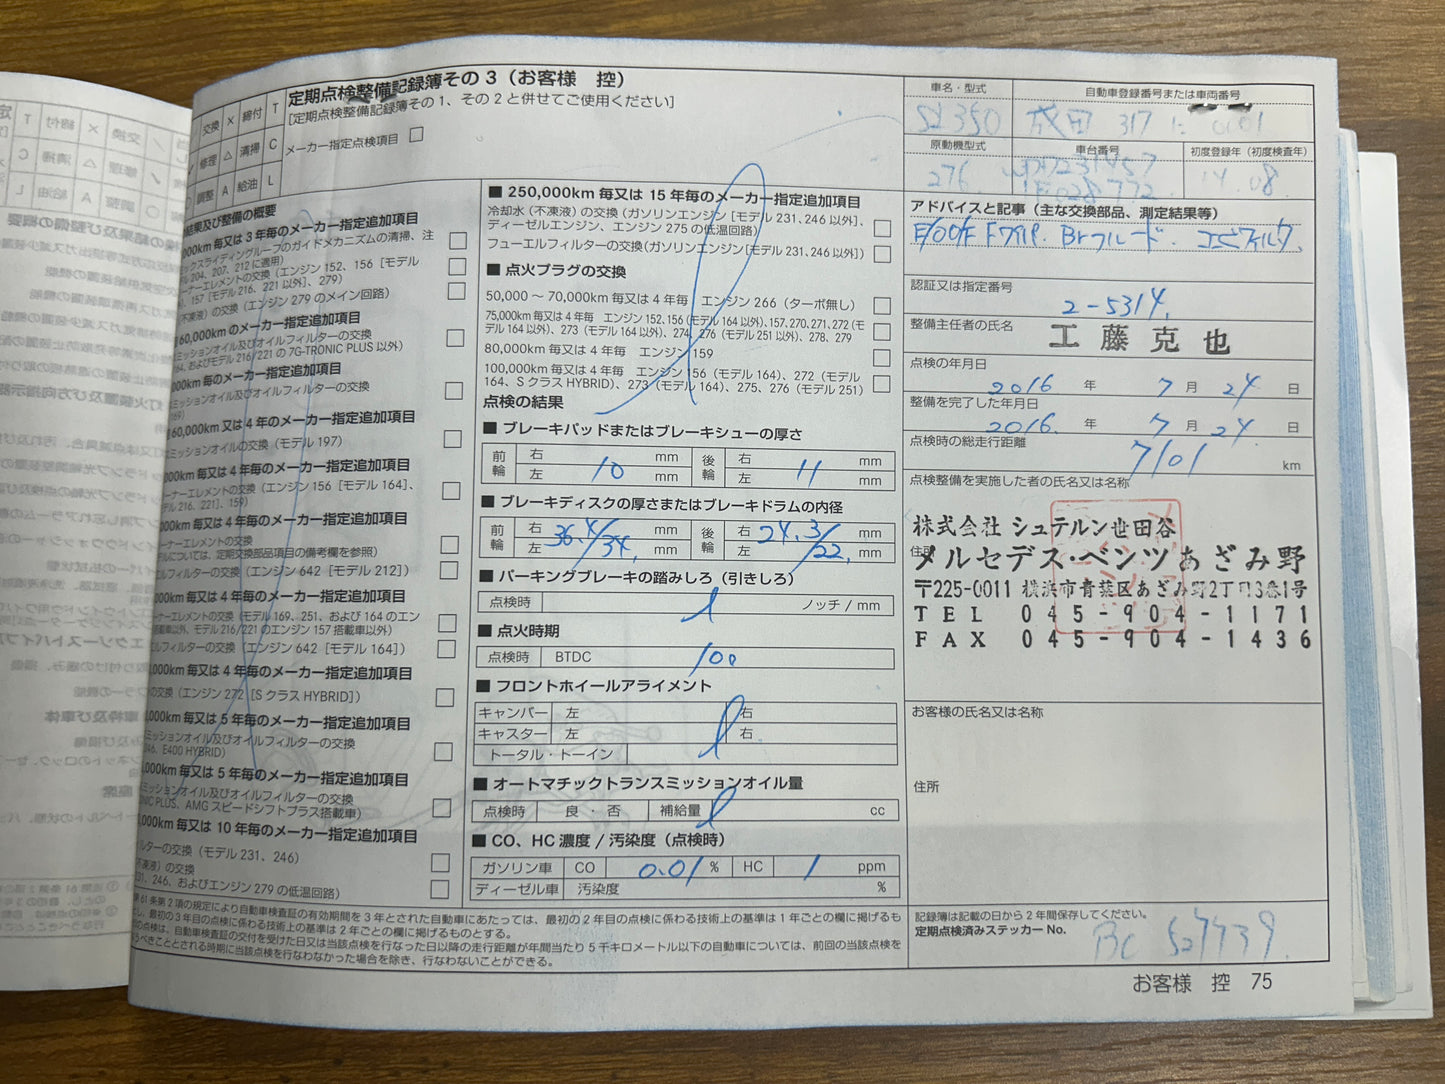 定期点検整備記録簿その3（お客様 控）
[定期点検整備記録簿その1、その2と併せてご使用ください]
交換 × 締付 T
修理 △ 清掃 C
調整 A 給油 L
メーカー指定点検項目 □
車名・型式
SL350
自動車登録番号または車両番号
成田 317
原動機型式
276
車台番号
WDD231457
1F028772
初度登録年（初度検査年）
14.08
結果及び整備の概要
000km毎又は3年毎のメーカー指定追加項目
ックスライディングルーフのガイドメカニズムの清掃、注
ル204、207、212に適用）
ーナーエレメントの交換（エンジン152、156［モデル
、157［モデル216、221以外］、279）
不凍液）の交換（エンジン279のメイン回路）
60,000kmのメーカー指定追加項目
ミッションオイル及びオイルフィルターの交換
164、およびモデル216/221の7G-TRONIC PLUS以外）
000km毎のメーカー指定追加項目
ミッションオイル及びオイルフィルターの交換
169）
60,000km又は4年毎のメーカー指定追加項目
ミッションオイルの交換（モデル197）
000km毎又は4年毎のメーカー指定追加項目
ーナーエレメントの交換（エンジン156［モデル164］、
デル216、221］、159）
000km毎又は4年毎のメーカー指定追加項目
ーナーエレメントの交換
ルについては、定期交換部品項目の備考欄を参照）
ルフィルターの交換（エンジン642［モデル212］）
000km毎又は4年毎のメーカー指定追加項目
ーナーエレメントの交換（モデル169、251、および164のエン
搭載車以外、モデル216/221のエンジン157搭載車以外）
ルフィルターの交換（エンジン642［モデル164］）
,000km毎又は4年毎のメーカー指定追加項目
の交換（エンジン272［SクラスHYBRID］）
,000km毎又は5年毎のメーカー指定追加項目
ミッションオイル及びオイルフィルターの交換
246、E400 HYBRID）
,000km毎又は5年毎のメーカー指定追加項目
ミッションオイル及びオイルフィルターの交換
ONIC PLUS、AMGスピードシフトプラス搭載車）
,000km毎又は10年毎のメーカー指定追加項目
ルターの交換（モデル231、246）
不凍液）の交換
231、246、およびエンジン279の低温回路）
■ 250,000km毎又は15年毎のメーカー指定追加項目
冷却水（不凍液）の交換（ガソリンエンジン［モデル231、246以外］、
ディーゼルエンジン、エンジン275の低温回路）
フューエルフィルターの交換（ガソリンエンジン［モデル231、246以外］）
■ 点火プラグの交換
50,000～70,000km毎又は4年毎 エンジン266（ターボ無し）
75,000km毎又は4年毎 エンジン152、156（モデル164以外）、157、270、271、272（モ
デル164以外）、273（モデル164以外）、274、276（モデル251以外）、278、279
80,000km毎又は4年毎 エンジン159
100,000km毎又は4年毎 エンジン156（モデル164）、272（モデル
164、SクラスHYBRID）、273（モデル164）、275、276（モデル251）
点検の結果
■ ブレーキパッドまたはブレーキシューの厚さ
前輪 右 左 10 mm mm 後輪 右 左 11 mm mm
■ ブレーキディスクの厚さまたはブレーキドラムの内径
前輪 右 左 36.4/34. mm mm 後輪 右 左 24.3/22. mm mm
■ パーキングブレーキの踏みしろ（引きしろ）
点検時 ノッチ / mm
■ 点火時期
点検時 BTDC 10°
■ フロントホイールアライメント
キャンバー 左 右
キャスター 左 右
トータル・トーイン
■ オートマチックトランスミッションオイル量
点検時 良・否 補給量 cc
■ CO、HC濃度 / 汚染度（点検時）
ガソリン車 CO 0.01 % HC 1 ppm
ディーゼル車 汚染度 %
第61条第2項の規定により自動車検査証の有効期間を3年とされた自動車にあたっては、最初の2年目の点検に係わる技術上の基準は1年ごとの欄に掲げるも
とし、最初の3年目の点検に係わる技術上の基準は2年ごとの欄に掲げるものとする。
の点検は、自動車検査証の交付を受けた日又は当該点検を行なった日以降の走行距離が年間当たり5千キロメートル以下の自動車については、前回の当該点検を
うべきこととされる時期に当該点検を行なわなかった場合を除き、行なわないことができる。
アドバイスと記事（主な交換部品、測定結果等）
E/O O/F Fワイパ. Brフルード. エアコンフィルタ.
認証又は指定番号
2-5314.
整備主任者の氏名
工藤克也
点検の年月日
2016 年 7 月 24 日
整備を完了した年月日
2016. 年 7 月 24 日
点検時の総走行距離
7101 km
点検整備を実施した者の氏名又は名称
株式会社 シュテルン世田谷
住所
メルセデス・ベンツあざみ野
〒225-0011 横浜市青葉区あざみ野2丁目3番1号
TEL 045-904-1171
FAX 045-904-1436
お客様の氏名又は名称
住所
記録簿は記載の日から2年間保存してください。
定期点検済みステッカーNo.
BC 527739.
お客様 控 75